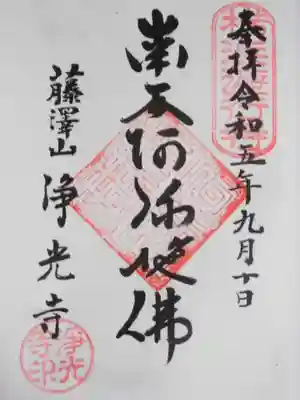 奉拝令和五年九月十日
南无阿弥陀佛
藤澤山
浄光寺
浄光
寺印